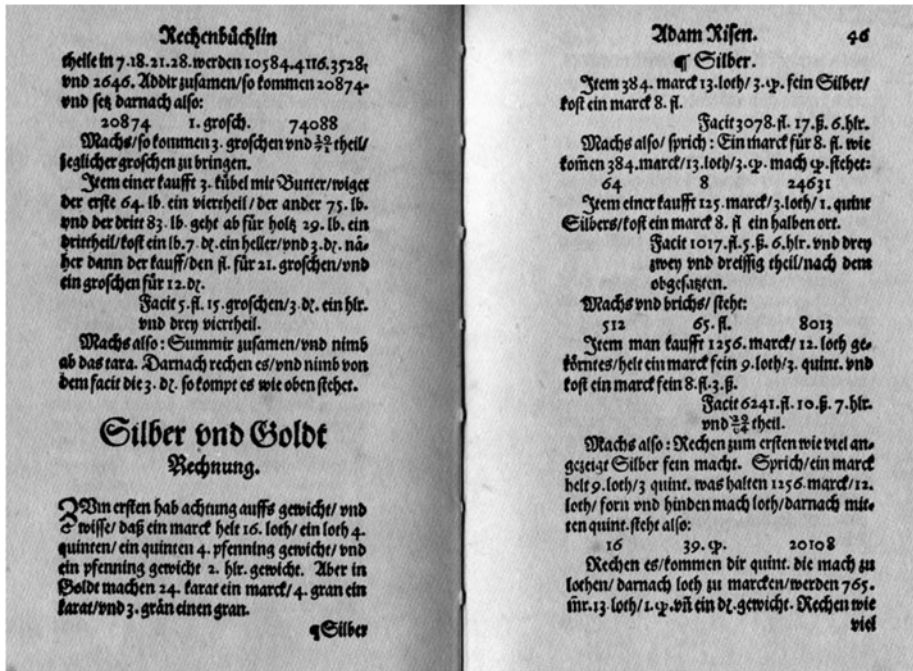 Rechenbüchlin
theile in 7.18.21.28.werden 10584.4116.3528,
vnd 2646. Addir zusamen/so kommen 20874.
vnd setz darnach also:
20874 1. grosch. 74088
Machs/so kommen 3. groschen vnd theil/
jeglicher groschen zu bringen.
Item einer kaufft 3. kübel mit Butter/wiget
der erste 64. lb. ein viertheil/der ander 75. lb.
vnd der dritt 83. lb. geht ab für holtz 29. lb. ein
drittheil/kost ein lb.7 ₰. ein heller/vnd 3.₰. nä-
her dann der kauff/den fl. für 21. groschen/vnd
ein groschen für 12.₰.
Facit 5.fl. 15.groschen/3.₰. ein hlr.
vnd drey viertheil.
Machs also: Summir zusamen/vnd nimb
ab das tara. Darnach rechen es/vnd nimb von
dem facit die 3.₰. so kompt es wie oben stehet.
Silber vnd Goldt
Rechnung.
ZVm ersten hab achtung auffs gewicht/ vnd
wisse/ daß ein marck helt 16. loth/ ein loth 4.
quinten/ ein quinten 4. pfenning gewicht/ vnd
ein pfenning gewicht 2. hlr. gewicht. Aber in
Goldt machen 24. karat ein marck/4. gran ein
karat/vnd 3. grän einen gran.
¶Silber
Adam Risen. 46
¶ Silber.
Item 384. marck 13.loth/ 3.qp. fein Silber/
kost ein marck 8. fl.
Facit 3078.fl. 17.ß. 6.hlr.
Machs also/ sprich: Ein marck für 8. fl. wie
kom̄en 384.marck/13.loth/3.qp. mach qp.stehet:
64 8 24631
Item einer kaufft 125.marck/3.loth/1. quint
Silbers/kost ein marck 8. fl ein halben ort.
Facit 1017.fl.5.ß. 6.hlr. vnd drey
zwey vnd dreissig theil/nach dem
obgesatzten.
Machs vnd brichs/ steht:
512 65. fl. 8013
Item man kaufft 1256.marck/ 12. loth ge-
körntes/helt ein marck fein 9.loth/3. quint. vnd
kost ein marck fein 8.fl.3.ß.
Facit 6241.fl. 10.ß. 7.hlr.
vnd theil.
Machs also: Rechen zum ersten wie viel an-
gezeigt Silber fein macht. Sprich/ein marck
helt 9.loth/3 quint. was halten 1256.marck/12.
loth/ forn vnd hinden mach loth/darnach mit-
ten quint.steht also:
16 39. qp. 20108
Rechen es/kommen dir quint. die mach zu
lothen/ darnach loth zu marcken/werden 765.
mr.13 loth/1.qp.vn̄ ein ₰.gewicht. Rechen wie
viel